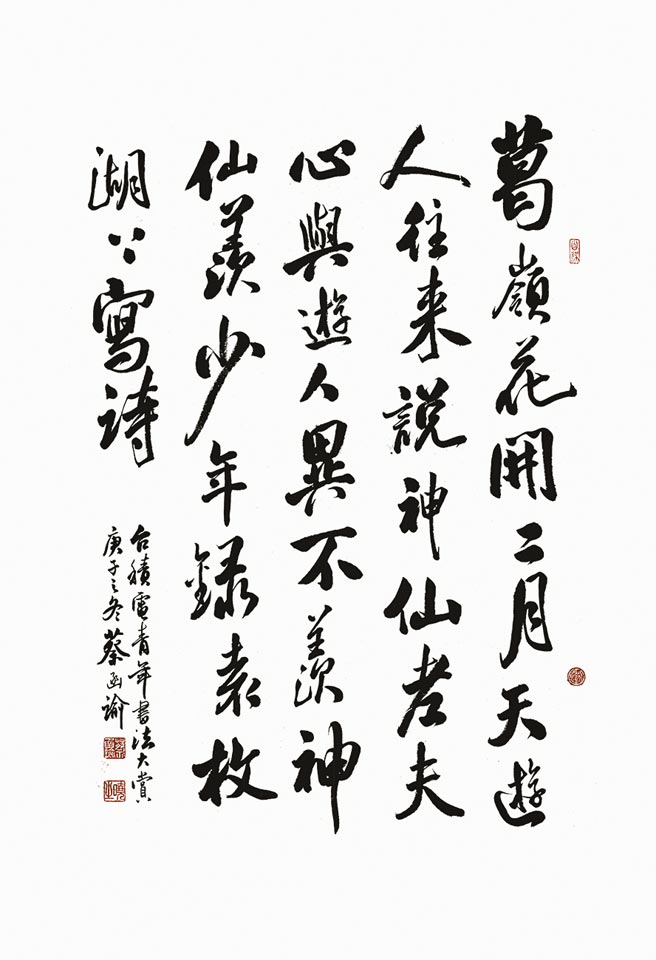 葛嶺花開二月天遊
人往来說神仙老夫
心與遊人異不羨神
仙羨少年録袁枚
湖上寫詩
台積電青年書法大賞
庚子之冬蔡函諭